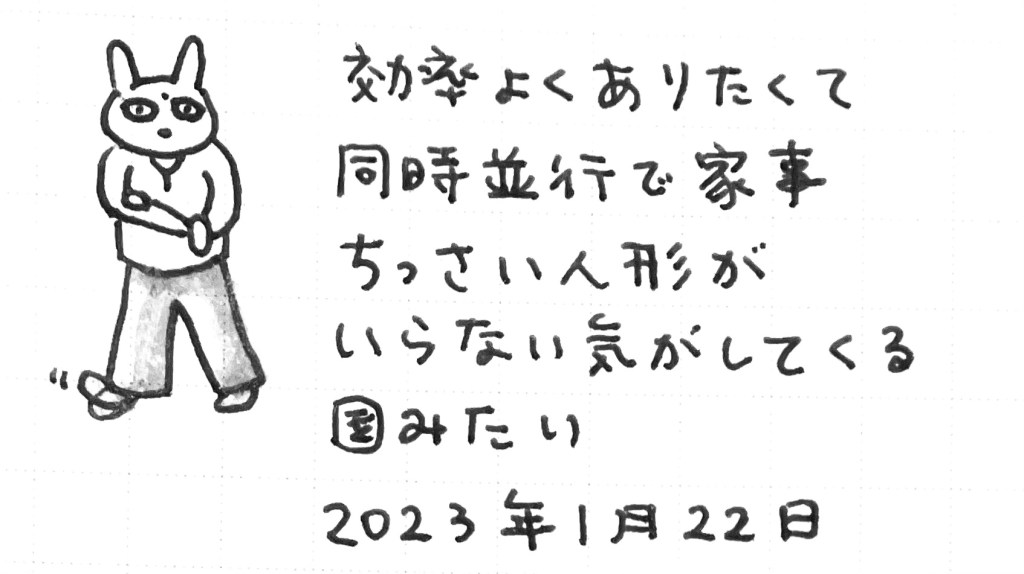 効率よくありたくて
同時並行で家事
ちっさい人形が
いらない気がしてくる
みたい
2023年1月22日